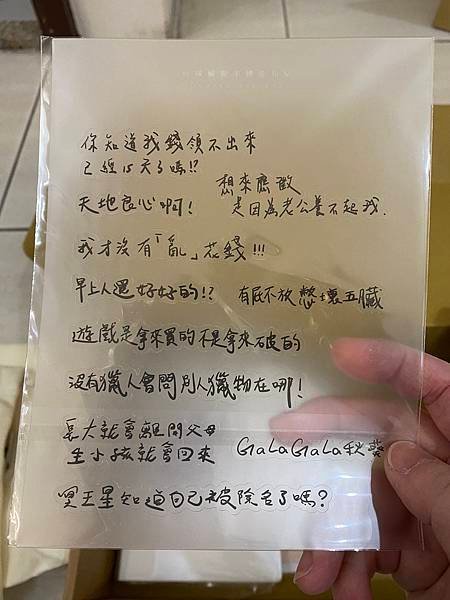 你知道我錢領不出來
已經15天了嗎!?
天地良心啊！
想來應徵
是因為老公養不起我.
我才沒有「亂」花錢!!!
早上人還好好的!?
有屁不放 憋壞五臟
遊戲是拿來買的不是拿來破的
沒有獵人會問別人獵物在哪！
長大就會離開父母
生小孩就會回來
GaLaGaLa秋葵
冥王星知道自己被除名了嗎？